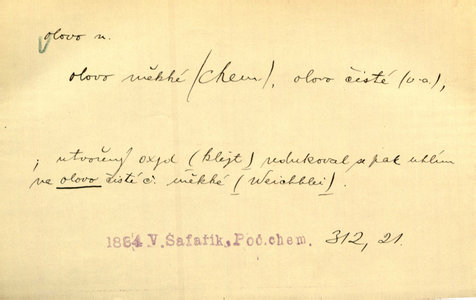 olovo n.
olovo měkké (chem), olovo čisté (v. a.),
; utvořený oxyd (klejt) redukoval se pak uhlím
ve olovo čisté č. měkké (Weichblei).
1884 V. Šafařík, Poč. chem. 312, 21.